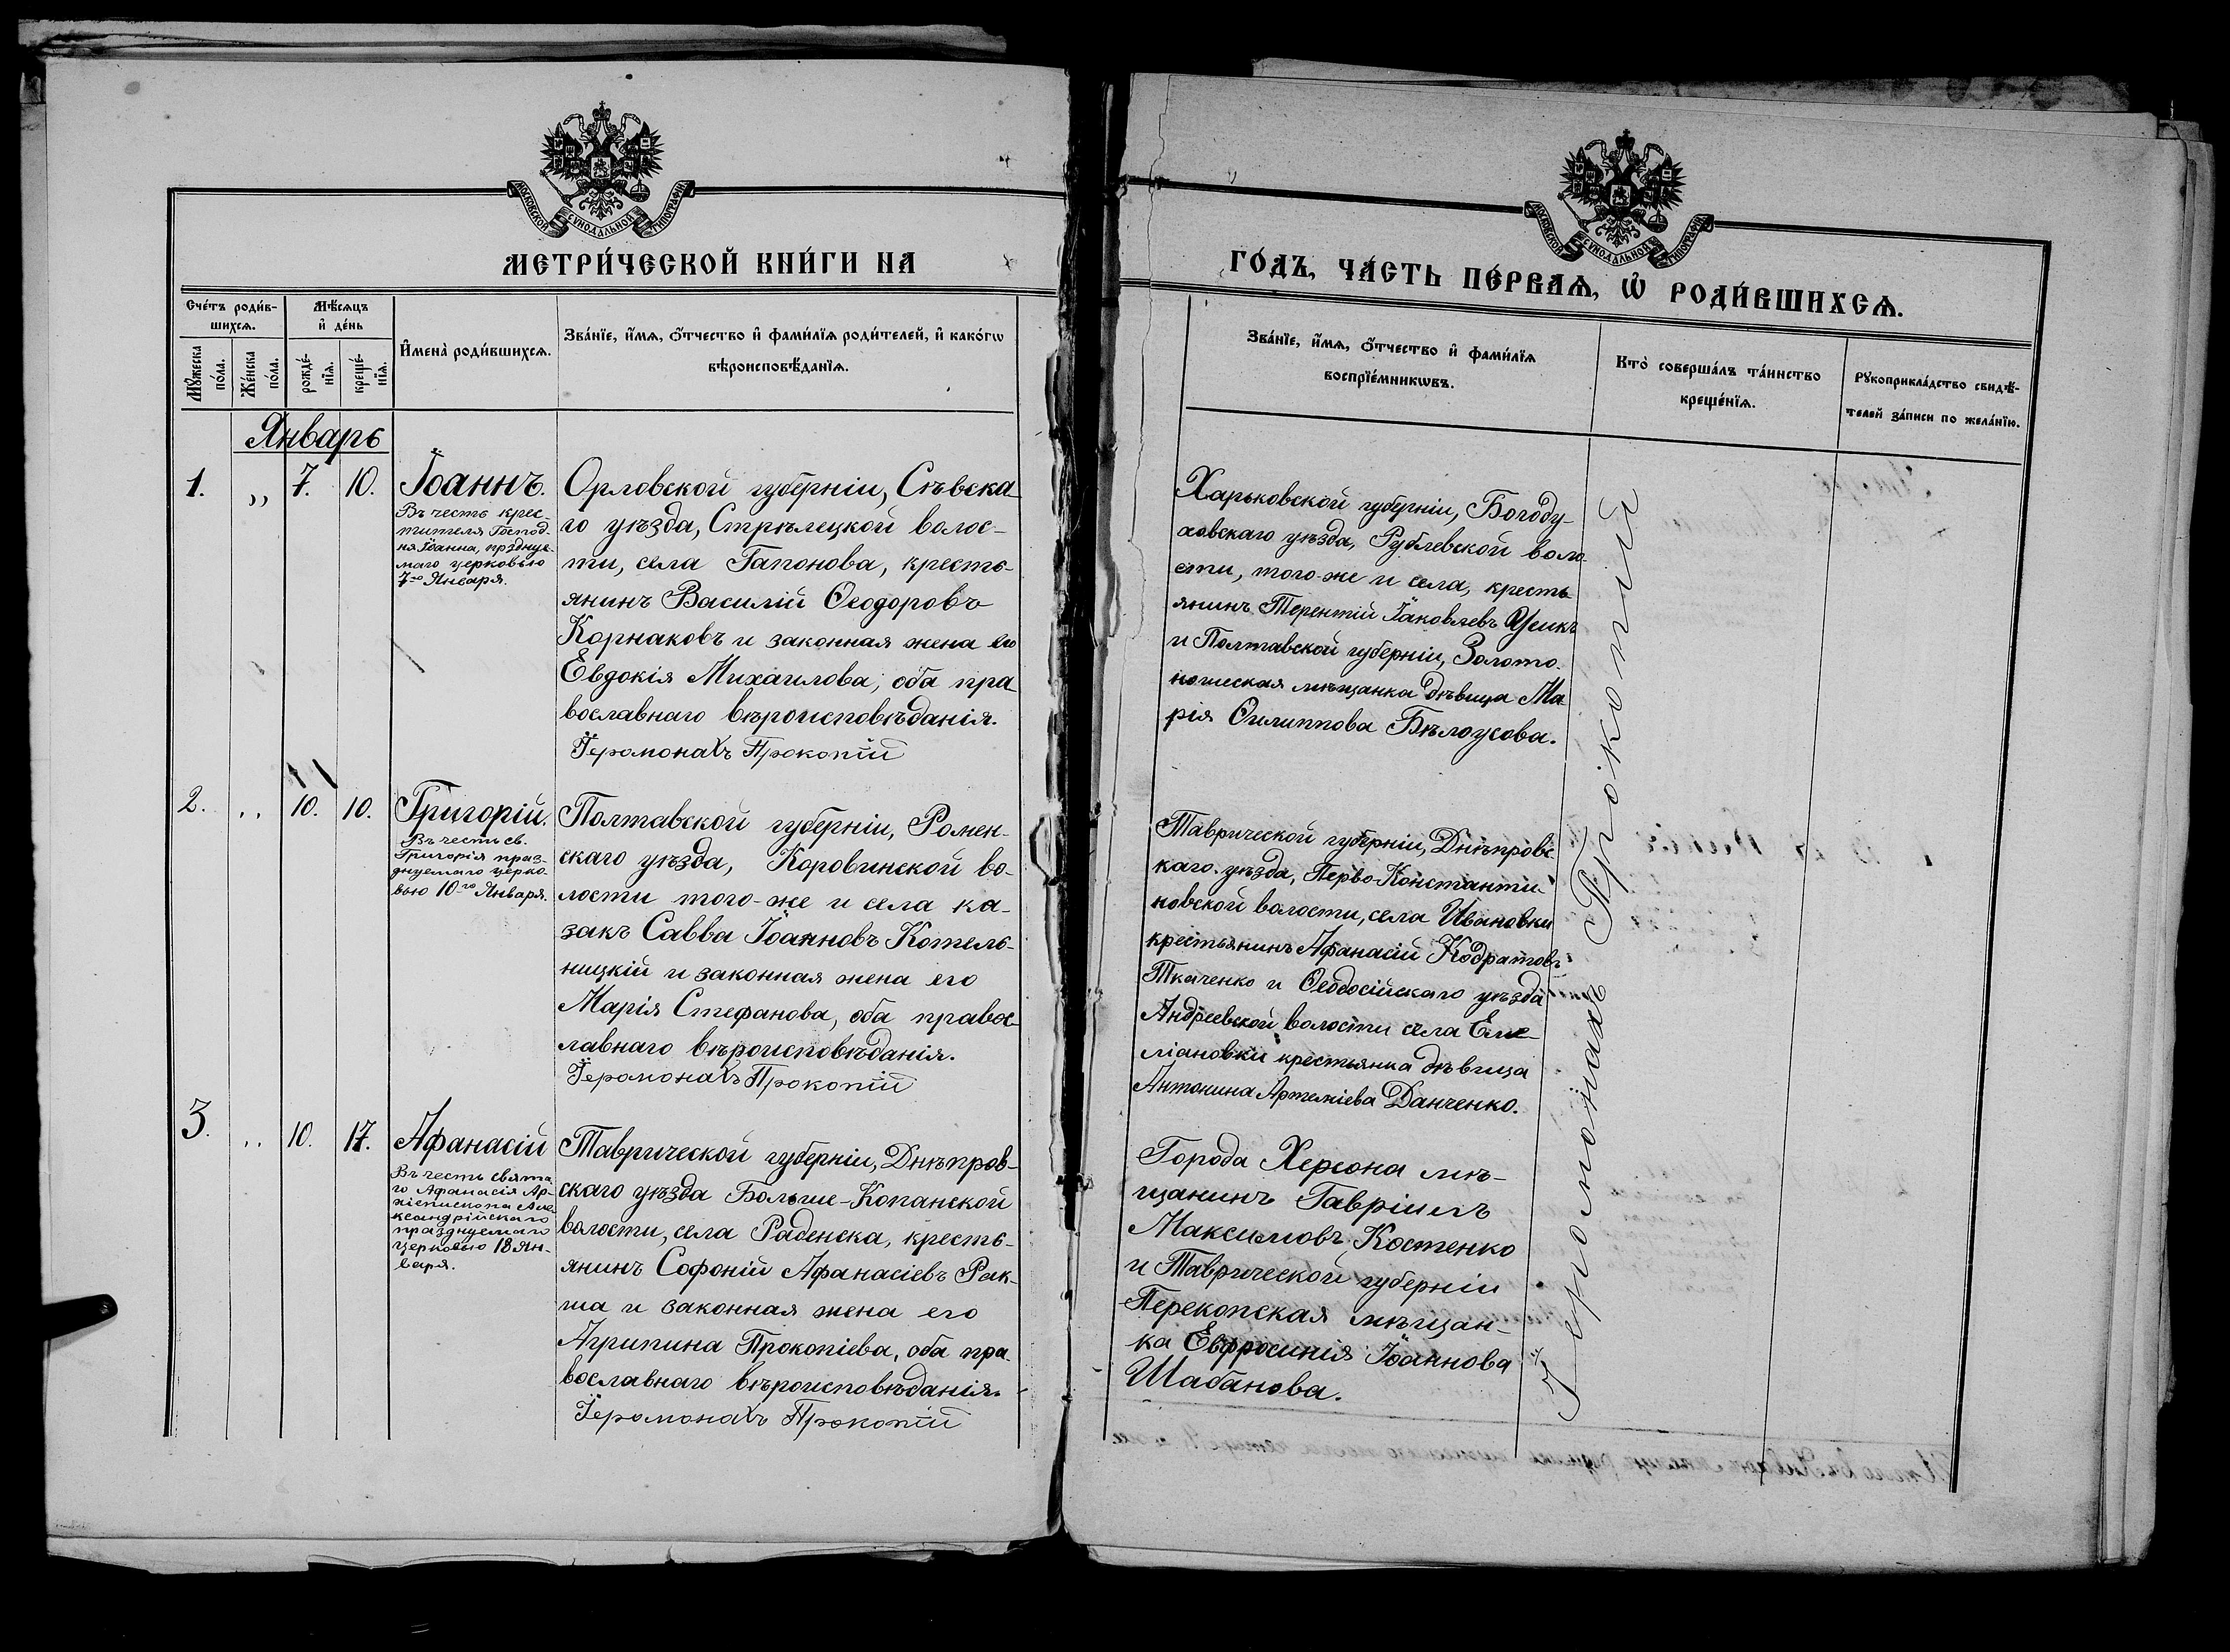 МОСКОВСКОЙ СѴНОДАЛЬНОЙ ТИПОГРАФІИ
МЕТРИ́ЧЕСКОЙ КНИ́ГИ НА
Сче́тъ роди́в-
шихсѧ.
Мѣ́сѧцъ
и҆ де́нь
И҆мена̀ роди́вшихсѧ.
Зва́нїе, и҆́мѧ, ѻ҆́тчество и҆ фами́лїѧ роди́телей, и҆ како́гѡ
вѣроисповѣ́данїѧ.
Мꙋ́жеска
по́ла.
Же́нска
по́ла.
рожде́-
нїѧ.
креще́-
нїѧ.
Январь
1. „ 7. 10. Іоаннъ.
Въ честь крес-
тителя Господ-
ня Іоанна, празднуе-
маго церковью
7-го Января.
Орловской губерніи, Сѣвска-
го уѣзда, Стрѣлецкой волос-
ти, села Гапонова, кресть-
янинъ Василій Ѳеодоровъ
Корнаковъ и законная жена его
Евдокія Михаилова, оба пра-
вославнаго вѣроисповѣданія.
Іеромонахъ Прокопій
2. „ 10. 10. Григорій.
Въ честь св.
Григорія праз-
днуемаго церко-
вью 10-го Января.
Полтавской губерніи, Ромен-
скаго уѣзда, Коровинской во-
лости того-же и села ка-
закъ Савва Іоанновъ Котель-
ницкій и законная жена его
Марія Стефанова, оба правос-
лавнаго вѣроисповѣданія.
Іеромонахъ Прокопій
3. „ 10. 17. Афанасій
Въ честь свята-
го Афанасія Ар-
хіепископа Але-
ксандрійскаго
празднуемаго
церковью 18 Ян-
варя.
Таврической губерніи, Днѣпров-
скаго уѣзда Больше-Копанской
волости, села Раденска, кресть-
янинъ Софоній Афанасіевъ Рак-
ша и законная жена его
Агрипина Прокопіева, оба пра-
вославнаго вѣроисповѣданія.
Іеромонахъ Прокопій
МОСКОВСКОЙ СѴНОДАЛЬНОЙ ТИПОГРАФІИ
ГО́ДЪ, ЧА́СТЬ ПЕ́РВАѦ, Ѡ҆ РОДИ́ВШИХСѦ.
Зва́нїе, и҆́мѧ, ѻ҆́тчество и҆ фами́лїѧ
воспрїе́мникѡвъ.
Кто̀ соверша́лъ та́инство
креще́нїѧ.
Рꙋкоприкла́дство свидѣ́-
телей за́писи по жела́нїю.
Харьковской губерніи, Богоду-
ховскаго уѣзда, Рублевской воло-
сти, того-же и села, кресть-
янинъ Терентій Іаковлевъ Усикъ
и Полтавской губерніи, Золото-
ношская мѣщанка дѣвица Ма-
рія Филиппова Бѣлоусова.
Таврической губерніи, Днѣпровс-
каго уѣзда, Перво-Константи-
новской волости, села Ивановки
крестьянинъ Афанасій Кодратовъ
Ткаченко и Ѳеодосійскаго уѣзда
Андреевской волости села Еме-
ліановки крестьянка дѣвица
Антонина Артеміева Данченко.
Города Херсона мѣ-
щанинъ Гавріилъ
Максимовъ Костенко
и Таврической губерніи
Перекопская мѣщан-
ка Евфросинія Іоаннова
Шабанова.
Іеромонахъ Прокопій